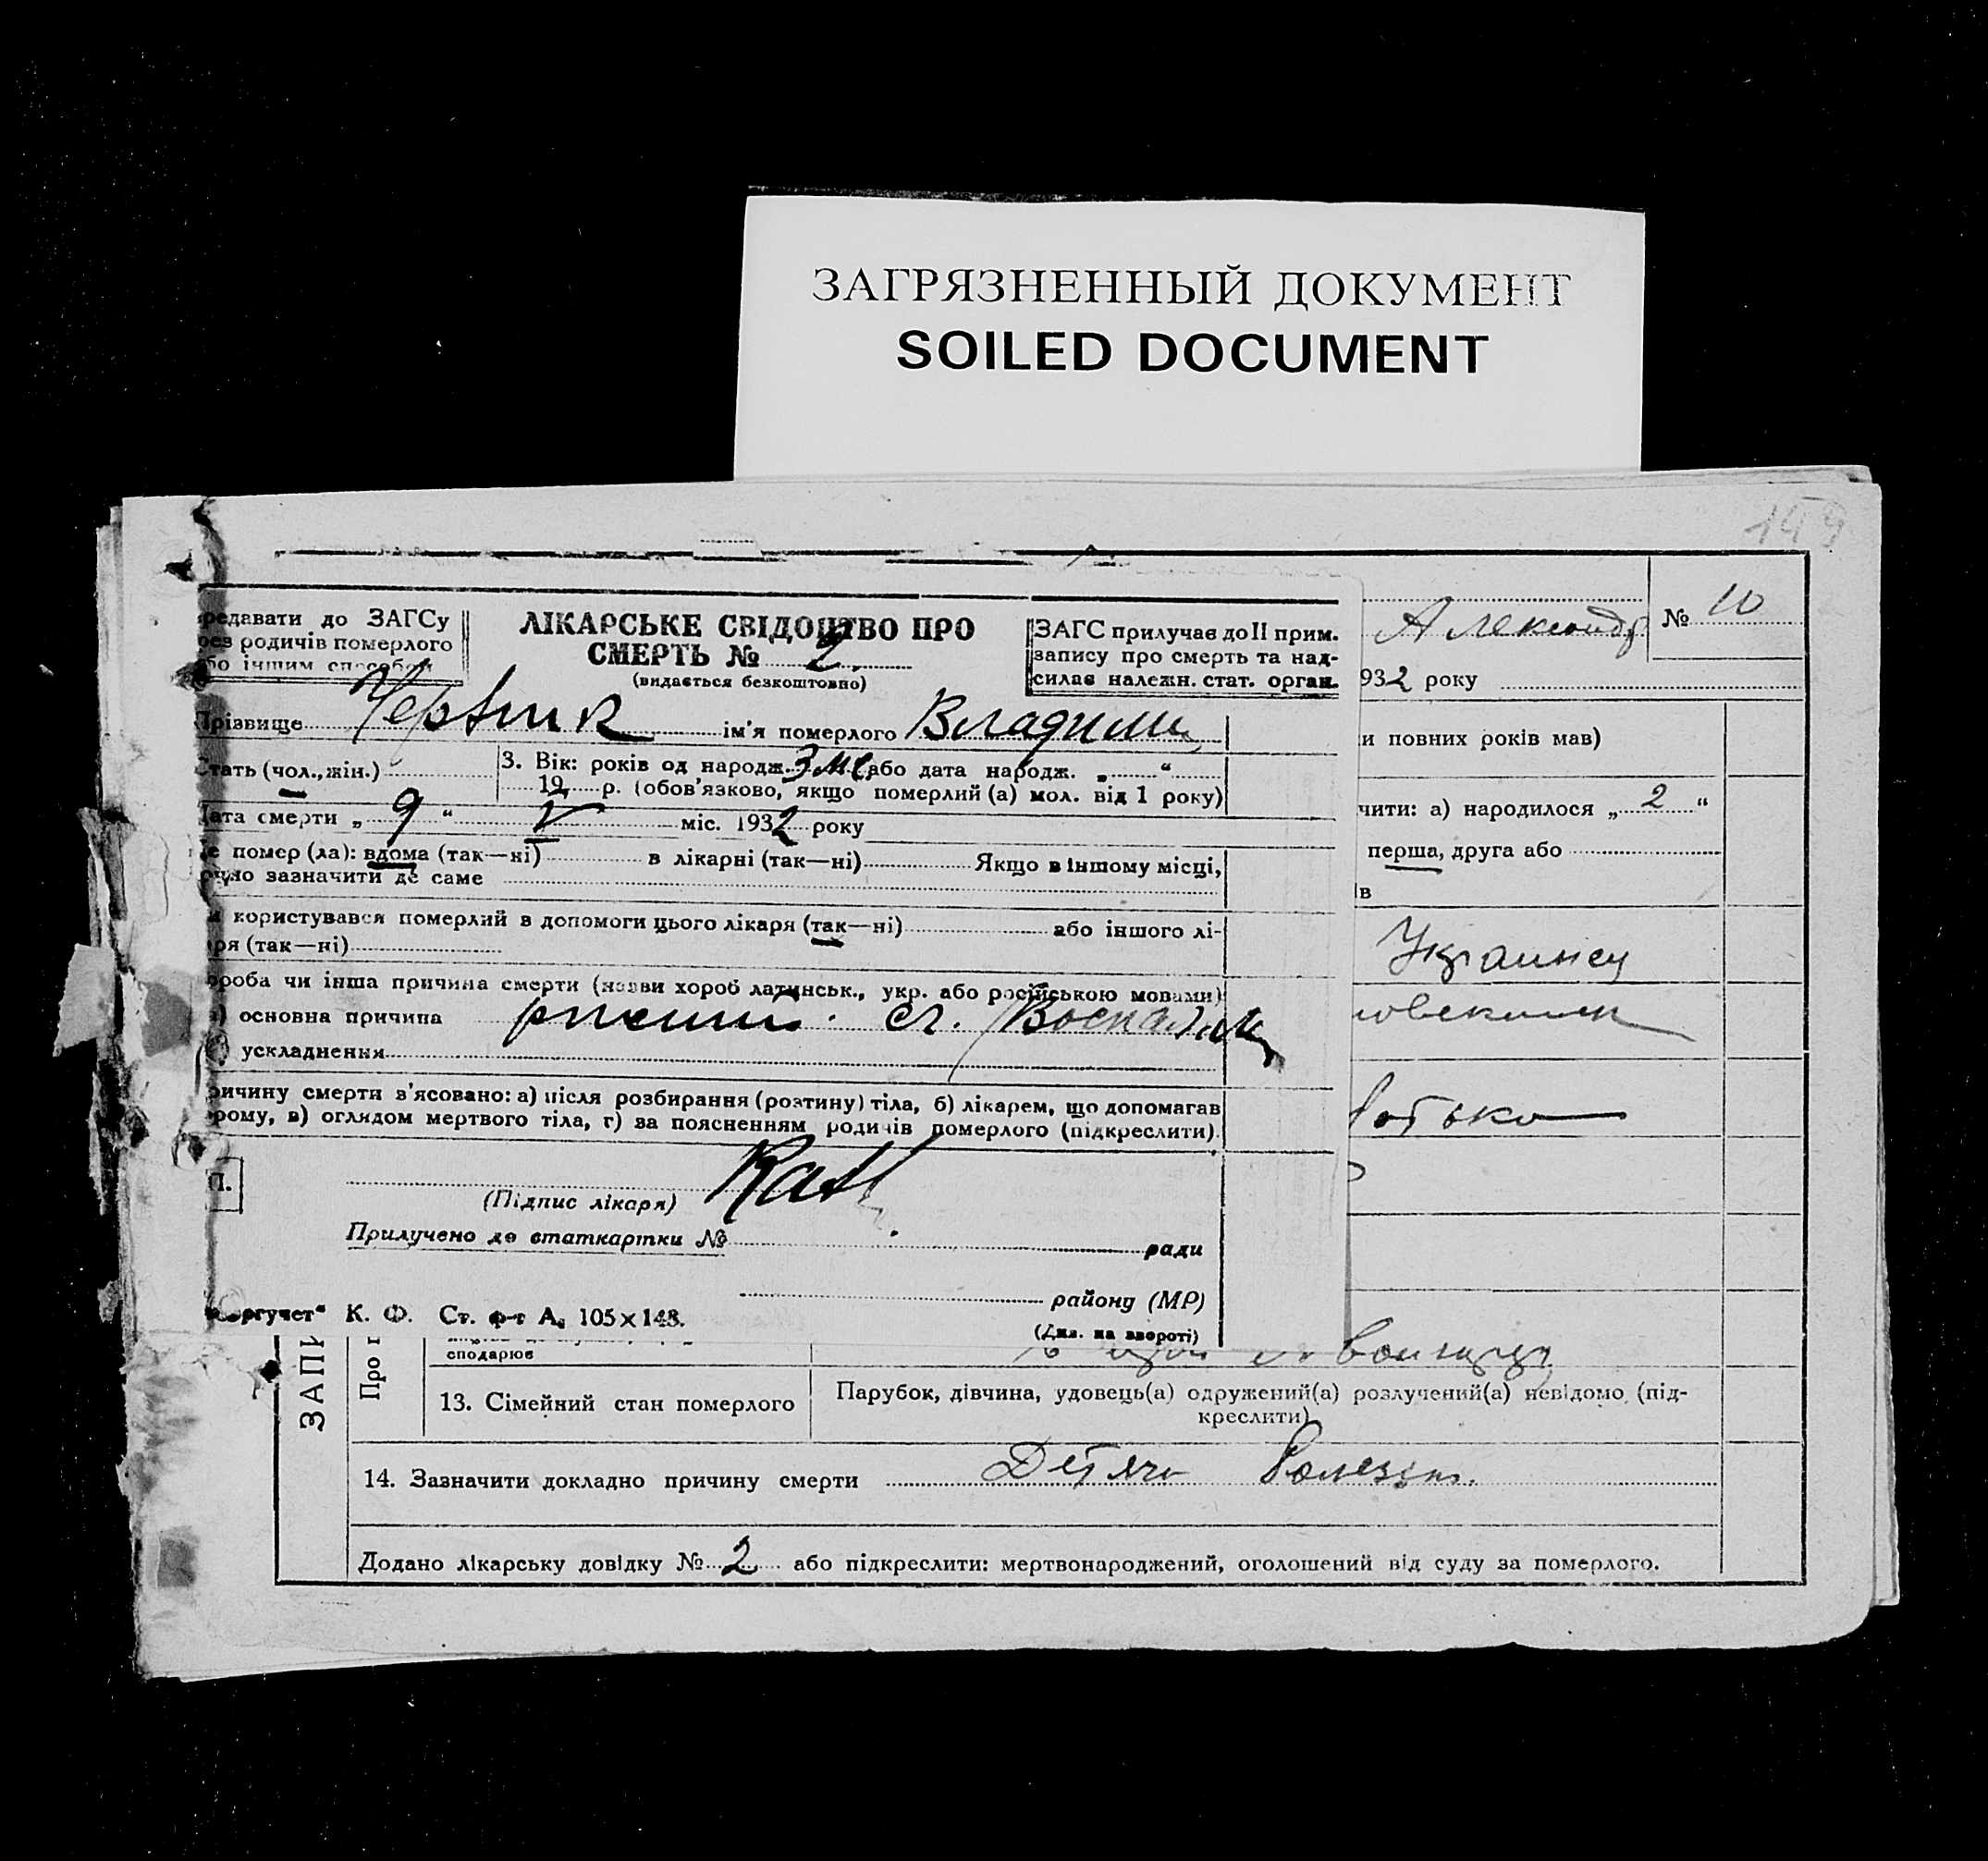 ЗАГРЯЗНЕННЫЙ ДОКУМЕНТ
SOILED DOCUMENT
редавати до ЗАГСу
рез родичів померлого
бо іншим способом
ЛІКАРСЬКЕ СВІДОЦТВО ПРО
СМЕРТЬ № 2.
(видається безкоштовно)
ЗАГС прилучає до II прим.
запису про смерть та над-
силає належн. стат. орган.
Прізвище ім'я померлого Владимир
Стать (чол., жін.)
3. Вік: років од народж. 3 мс. або дата народж. „ “
19 р. (обов'язково, якщо померлий (а) мол. від 1 року)
Дата смерти „ 9 “ V міс. 1932 року
Де помер (ла): вдома (так—ні) в лікарні (так—ні) Якщо в іншому місці,
точно зазначити де саме
користувався померлий в допомоги цього лікаря (так—ні) або іншого лі-
ря (так—ні)
ороба чи інша причина смерти (назви хороб латинськ., укр. або російською мовами)
основна причина
ускладнення
ричину смерти з'ясовано: а) після розбирання (розтину) тіла, б) лікарем, що допомагав
рому, в) оглядом мертвого тіла, г) за поясненням родичів померлого (підкреслити).
П.
(Підпис лікаря)
Прилучено до статкартки № ради
району (МР)
(Див. на звороті)
ргучет“ К. Ф. Ст. ф-т А₆ 105×148.
149
Александр
№ 10
932 року
и повних років мав)
чити: а) народилося „ 2 “
перша, друга або
ів
Украинец
батько
ЗАПИ
Про
сподарюв
13. Сімейний стан померлого
Парубок, дівчина, удовець(а) одружений(а) розлучений(а) невідомо (під-
креслити)
14. Зазначити докладно причину смерти Детячи болезни.
Додано лікарську довідку № 2 або підкреслити: мертвонароджений, оголошений від суду за померлого.